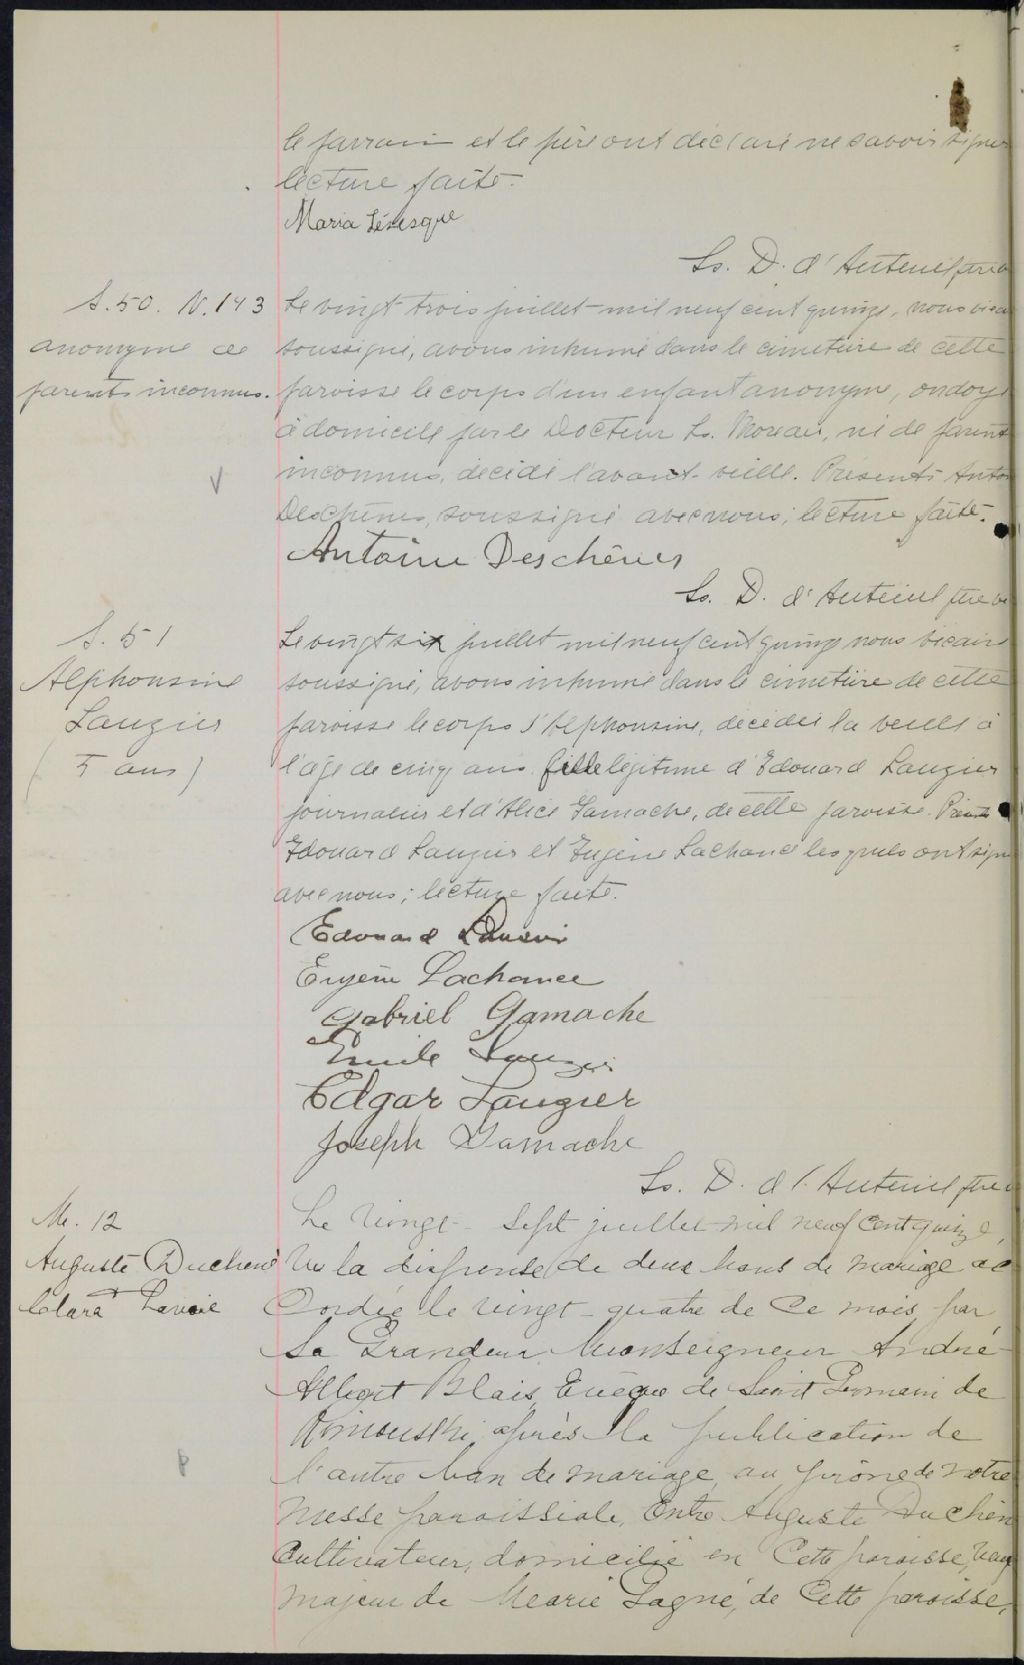 le parrain et le père ont déclaré ne savoir signer
lecture faite.
Maria Lévesque
Ls. D. d'Auteuil ptre
S.50. N.143
anonyme de
parents inconnus.
Le vingt trois juillet mil neuf cent quinze, nous vicaire
soussigné, avons inhumé dans le cimetière de cette
paroisse le corps d'un enfant anonyme, ondoyé
à domicile par le Docteur Ls. Moreau, né de parents
inconnus, décédé l'avant-veille. Présents Antoine
Deschênes, soussigné avec nous; lecture faite.
Antoine Deschênes
Ls. D. d'Auteuil ptre
S. 51
Alphonsine
Lauzier
(5 ans)
Le vingt six juillet mil neuf cent quinze nous vicaire
soussigné, avons inhumé dans le cimetière de cette
paroisse le corps d'Alphonsine, décédée la veille à
l'âge de cinq ans fille légitime d'Edouard Lauzier
journalier et d'Alice Gamache, de cette paroisse. Présents
Edouard Lauzier et Eugène Lachance lesquels ont signé
avec nous; lecture faite.
Edouard Lauzier
Eugène Lachance
Gabriel Gamache
Emile Lauzier
Edgar Lauzier
Joseph Gamache
Ls. D. d'Auteuil ptre
M. 12
Auguste Duchene
+
Clara Lavoie
Le vingt-sept juillet mil neuf cent quinze,
Vu la dispense de deux bans de mariage ac
cordée le vingt-quatre de ce mois par
Sa Grandeur Monseigneur André
Albert Blais, Évêque de Saint Germain de
Rimouski, après la publication de
l'autre ban de mariage au prône de notre
Messe paroissiale, Entre Auguste Duchène
Cultivateur, domicilié en Cette paroisse, veuf
majeur de Marie Gagné, de Cette paroisse,